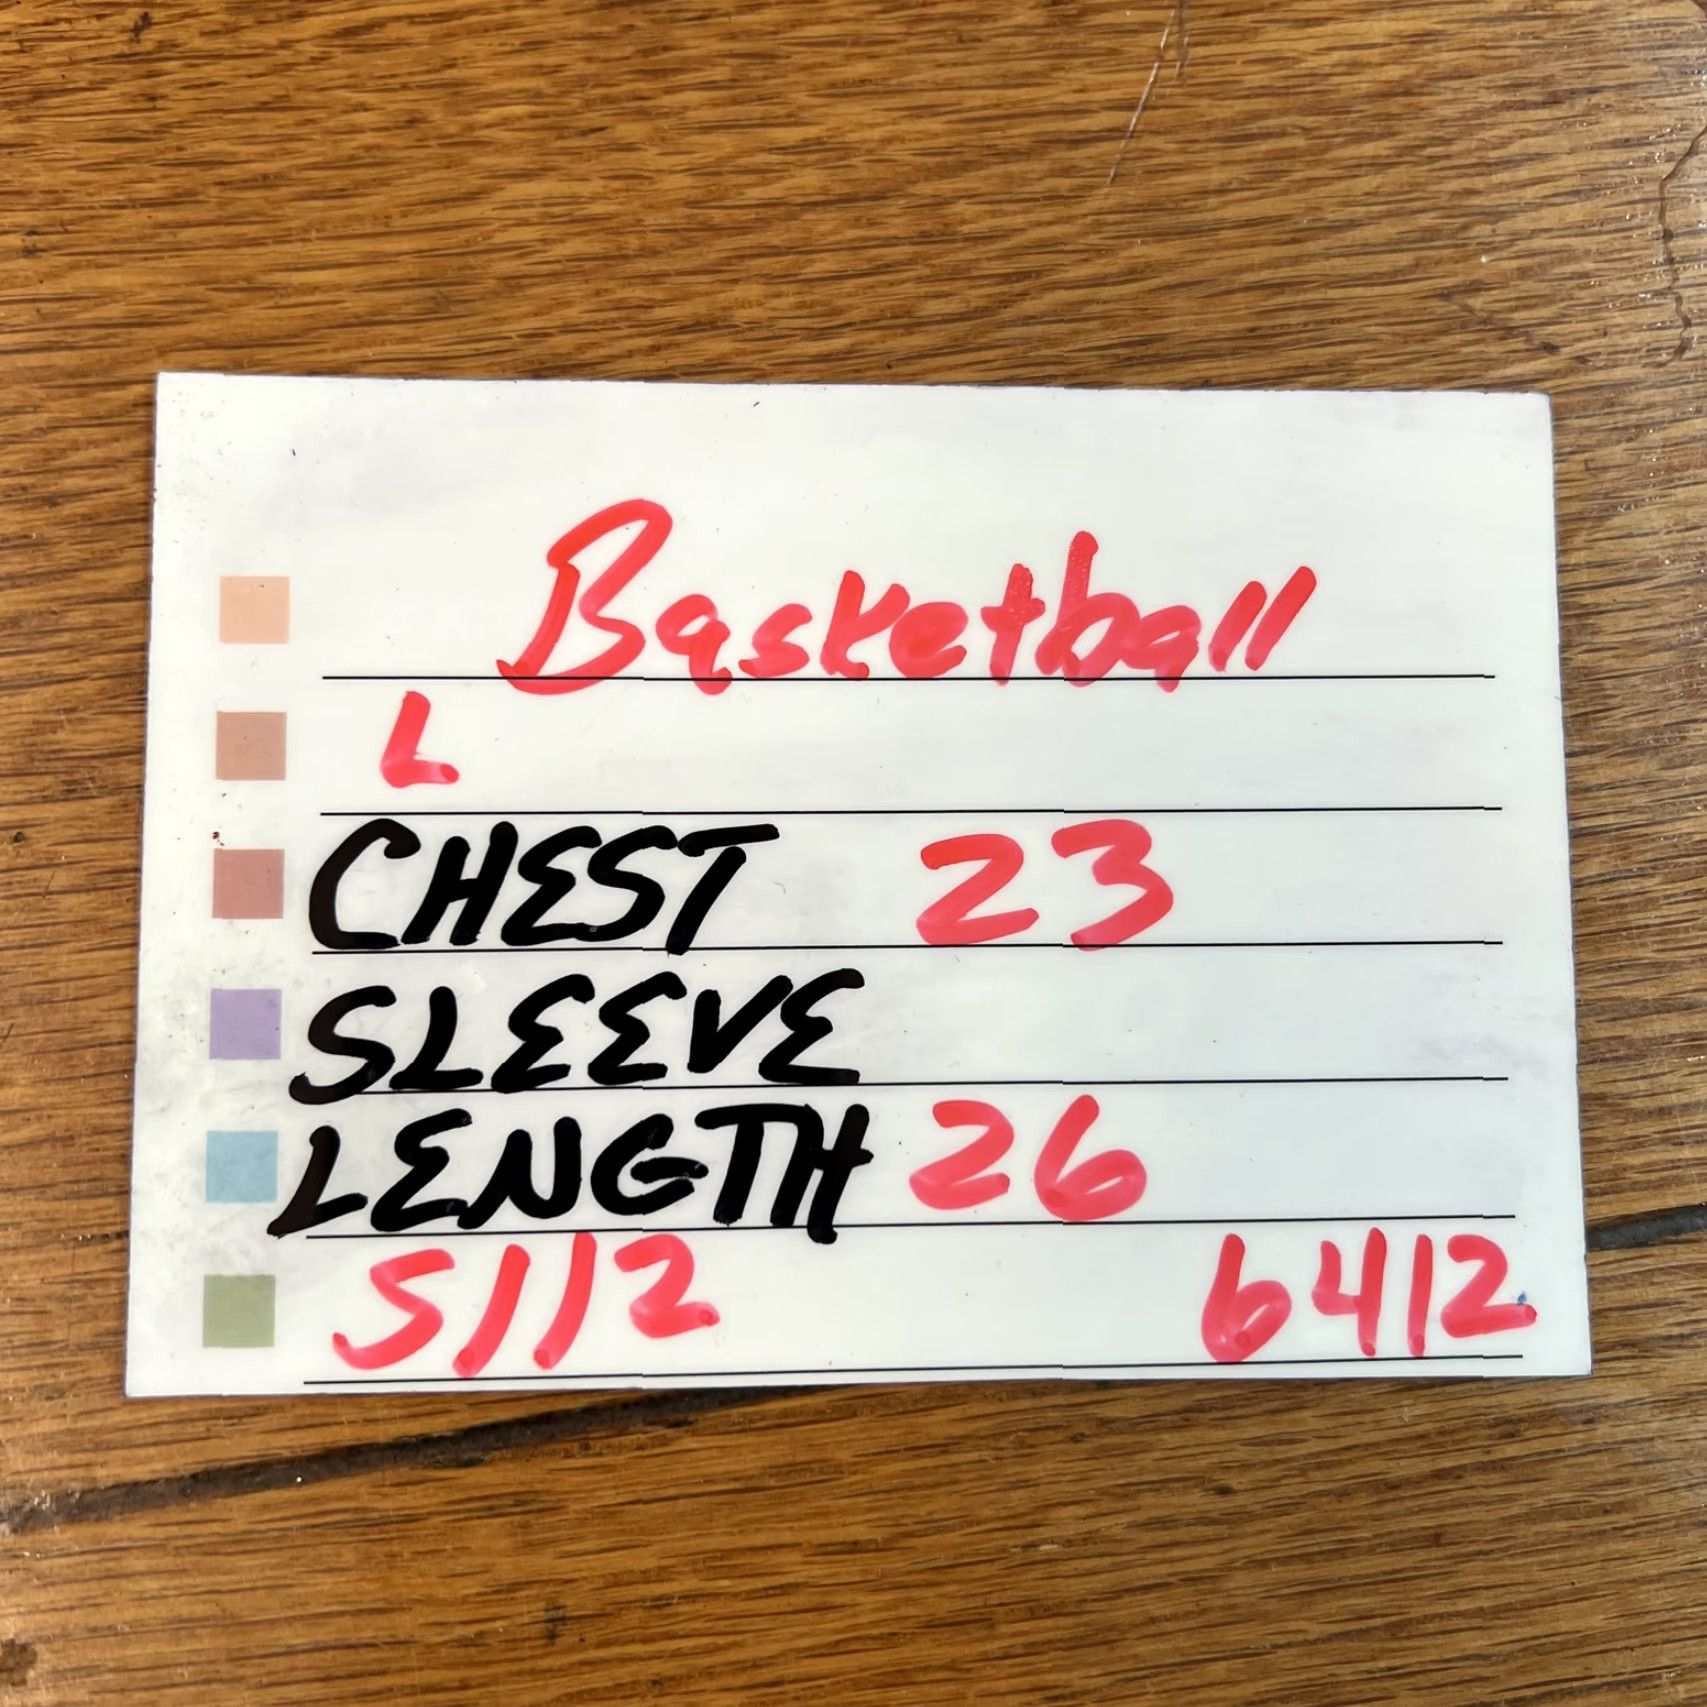 Basketball
L
CHEST 23
SLEEVE
LENGTH 26
5112 6412